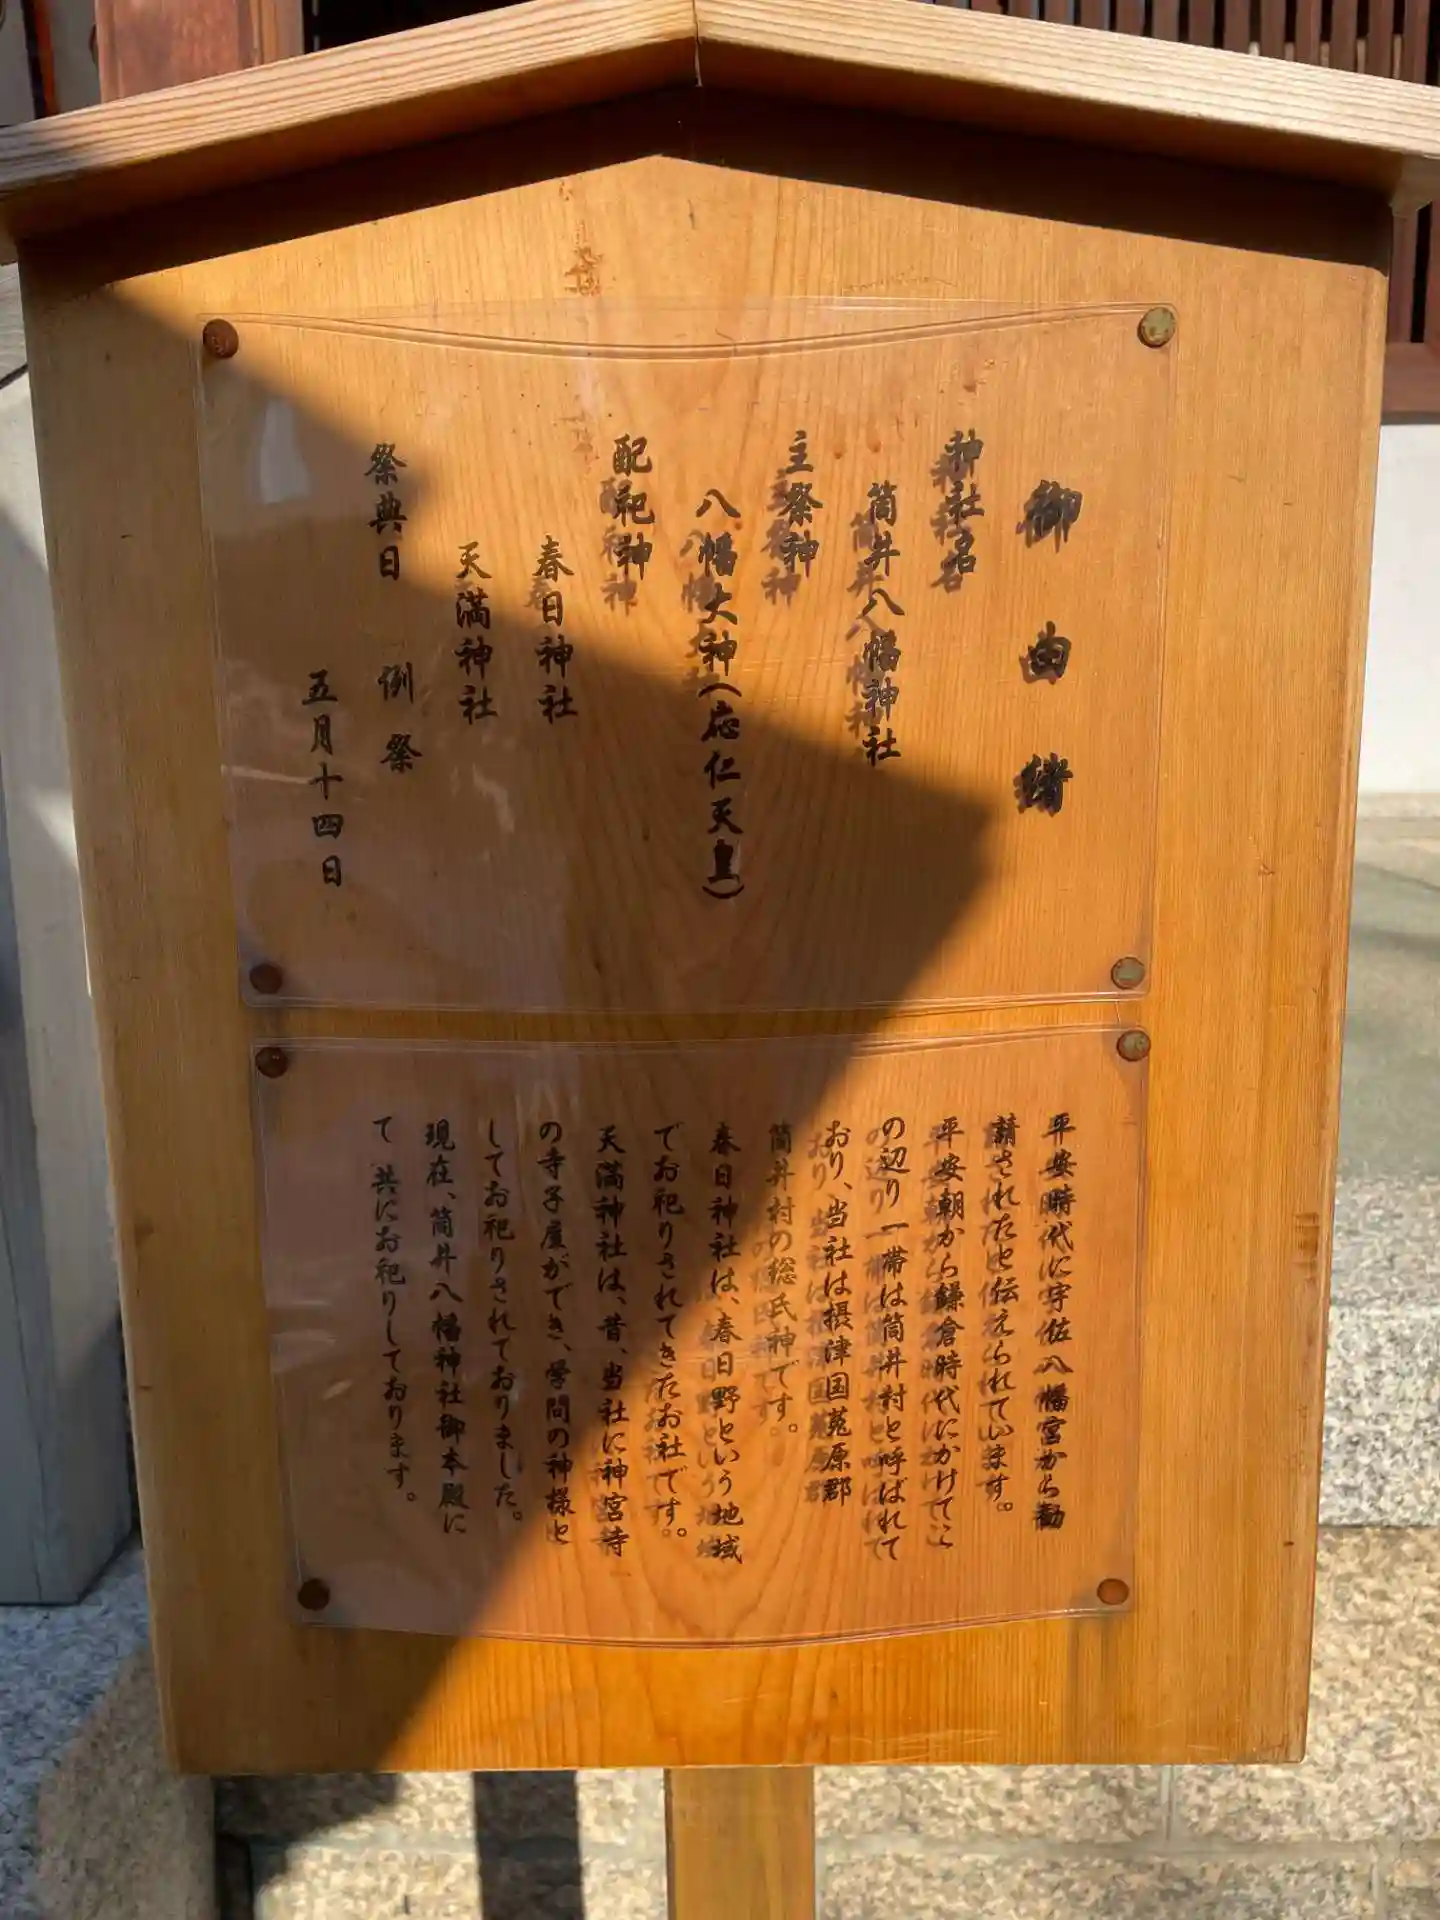 御由緒
神社名
筒井八幡神社
主祭神
八幡大神(応仁天皇)
配祀神
春日神社
天満神社
祭典日 例祭
五月十四日
平安時代に宇佐八幡宮から勧
請されたと伝えられています。
平安朝から鎌倉時代にかけてこ
の辺り一帯は筒井村と呼ばれて
おり、当社は摂津国菟原郡
筒井村の総氏神です。
春日神社は、春日野という地域
でお祀りされてきたお社です。
天満神社は、昔、当社に神宮寺
の寺子屋ができ、学問の神様と
してお祀りされておりました。
現在、筒井八幡神社御本殿に
て 共にお祀りしております。